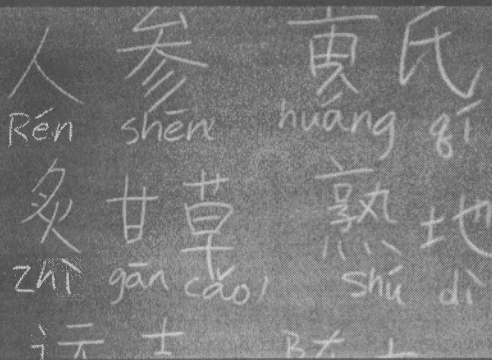 人 参 黄 氏
Rén shēn huáng qí
炙 甘 草 熟 地
zhì gān cǎo shú dì